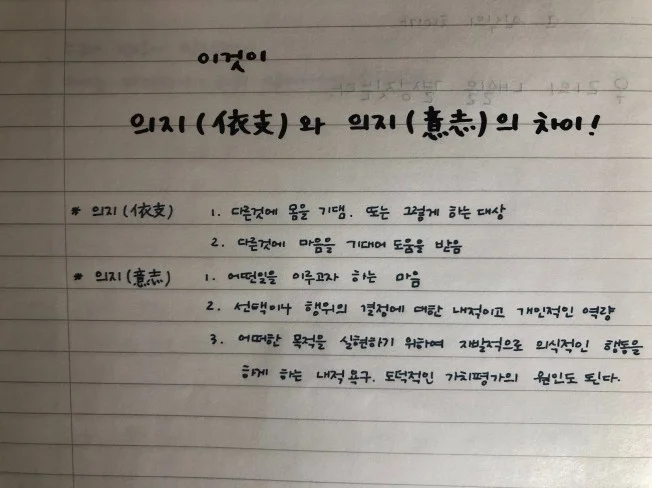 이것이
의지(依支)와 의지(意志)의 차이!
* 의지(依支) 1. 다른것에 몸을 기댐. 또는 그렇게 하는 대상
2. 다른것에 마음을 기대어 도움을 받음
* 의지(意志) 1. 어떤일을 이루고자 하는 마음
2. 선택이나 행위의 결정에 대한 내적이고 개인적인 역량
3. 어떠한 목적을 실현하기 위하여 자발적으로 의식적인 행동을
하게 하는 내적 욕구. 도덕적인 가치평가의 원인도 된다.